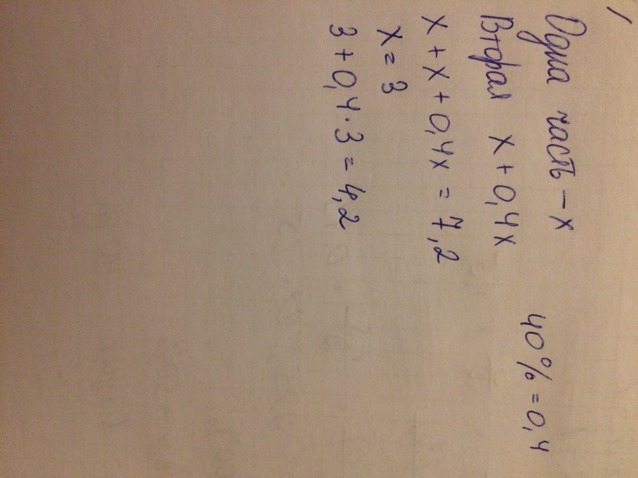 Одна часть – x
Вторая x + 0,4x
40% = 0,4
x + x + 0,4x = 7,2
x = 3
3 + 0,4 · 3 = 4,2